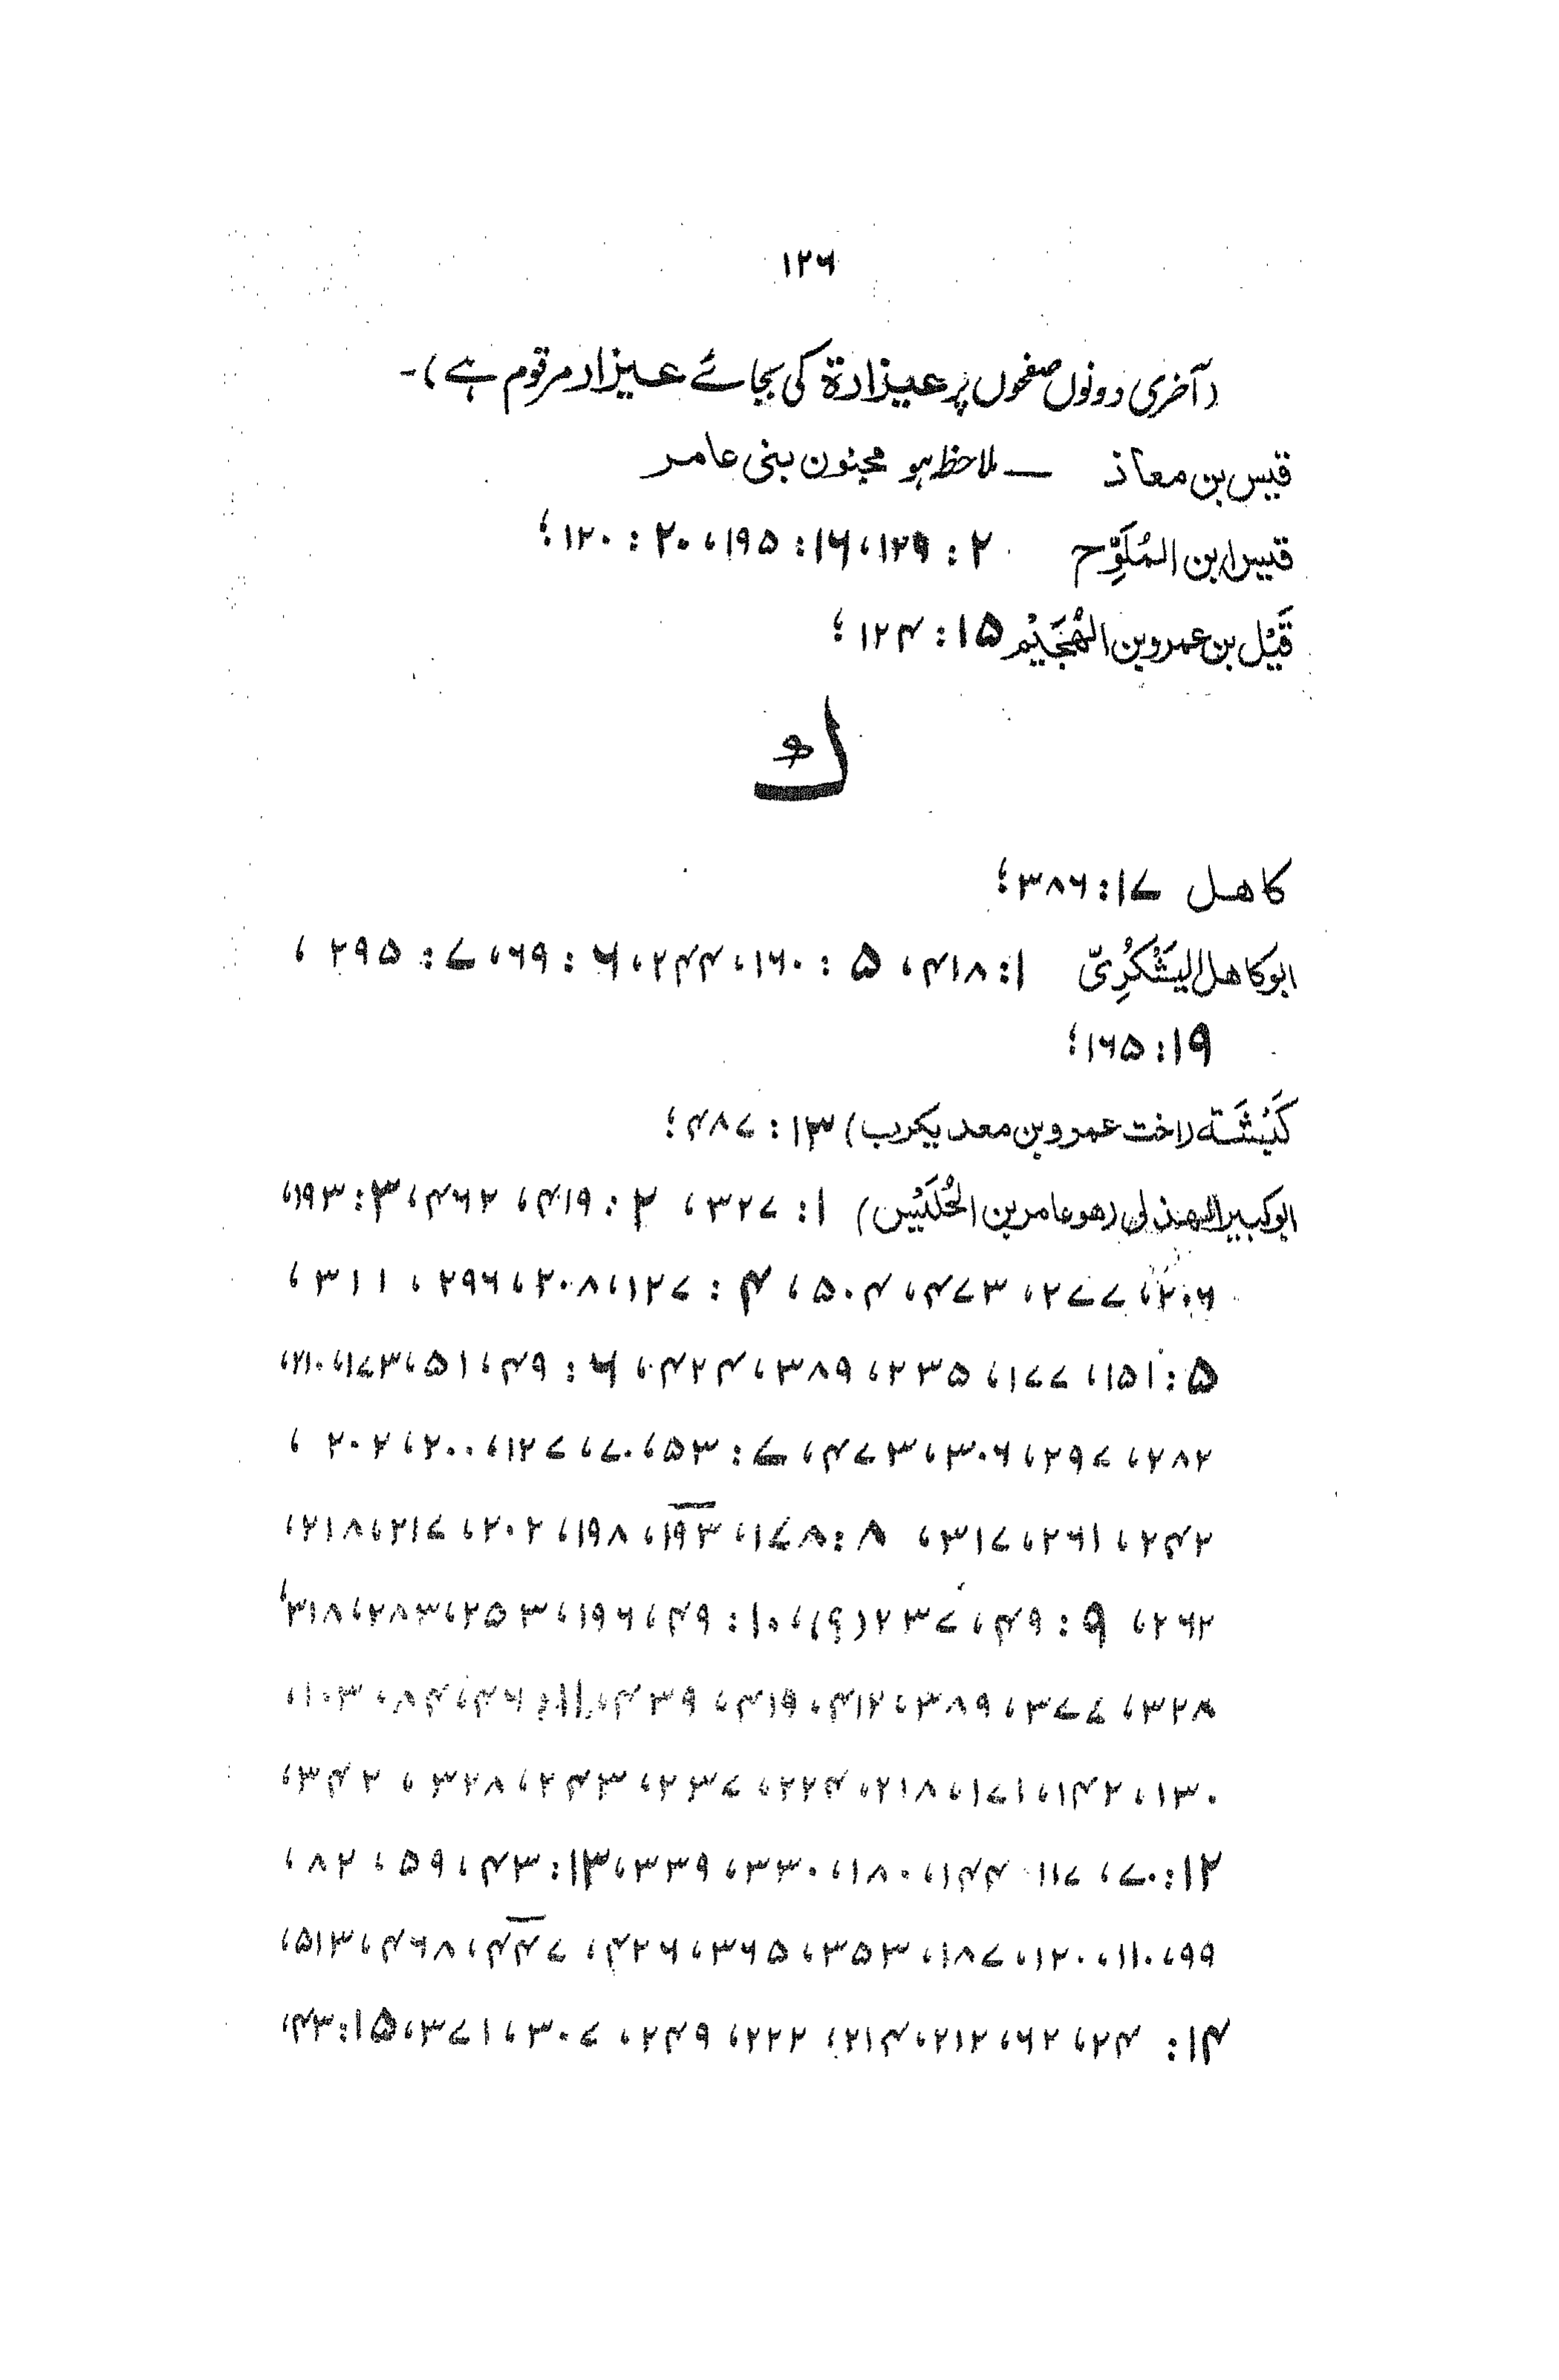 ۱۲۶
(آخری دونوں صفحوں پر عیزارۃ کی بجائے عیزار مرقوم ہے)۔
قیس بن معاذ — ملاحظہ ہو مجنون بنی عامر
قیس ابن المُلَوِّح ۲: ۱۲۹، ۱۶: ۱۹۵، ۲۰: ۱۲۰؛
قَیْل بن عمرو بن الھُجَیْم ۱۵: ۱۲۴؛
ك
کاھل ۱۷: ۳۸۶؛
ابو کاھل الیَشْکُرِیّ ۱: ۴۱۸، ۵: ۱۶۰، ۲۴۴، ۶: ۶۹، ۷: ۲۹۵،
۱۹: ۱۶۵؛
کَبْشَۃ (اخت عمرو بن معد یکرب) ۱۳: ۴۸۷؛
ابو کبیر الھذلی (ھو عامر بن الحُلَیْس) ۱: ۳۲۷، ۲: ۴۱۹، ۴۶۲، ۳: ۱۹۳،
۲۰۶، ۲۷۷، ۴۷۳، ۵۰۴، ۴: ۱۲۷، ۲۰۸، ۲۹۶، ۳۱۱،
۵: ۱۵۱، ۱۷۷، ۲۳۵، ۳۸۹، ۴۲۴، ۶: ۴۹، ۵۱، ۱۷۳، ۲۱۰،
۲۸۲، ۲۹۷، ۳۰۶، ۴۷۳، ۷: ۵۳، ۷۰، ۱۲۷، ۲۰۰، ۲۰۲،
۲۴۲، ۲۶۱، ۳۱۷، ۸: ۱۷۵، ۱۹۳، ۱۹۸، ۲۰۲، ۲۱۷، ۲۱۸،
۲۶۲، ۹: ۴۹، ۲۳۷ (؟)، ۱۰: ۴۹، ۱۹۶، ۲۵۳، ۲۸۳، ۳۱۸،
۳۲۸، ۳۷۷، ۳۸۹، ۴۱۲، ۴۱۹، ۴۳۹، ۱۱: ۴۶، ۸۴، ۱۰۳،
۱۳۰، ۱۴۲، ۱۷۱، ۲۱۸، ۲۲۴، ۲۳۷، ۲۴۳، ۳۲۸، ۳۴۲،
۱۲: ۷۰، ۱۱۷ ۱۴۴، ۱۸۰، ۳۳۰، ۳۳۹، ۱۳: ۴۳، ۵۹، ۸۲،
۹۹، ۱۱۰، ۱۲۰، ۱۸۷، ۳۵۳، ۳۶۵، ۴۲۶، ۴۴۷، ۴۶۸، ۵۱۳،
۱۴: ۲۴، ۶۲، ۲۱۲، ۲۱۴، ۲۲۲، ۲۴۹، ۳۰۷، ۳۷۱، ۱۵: ۴۳،